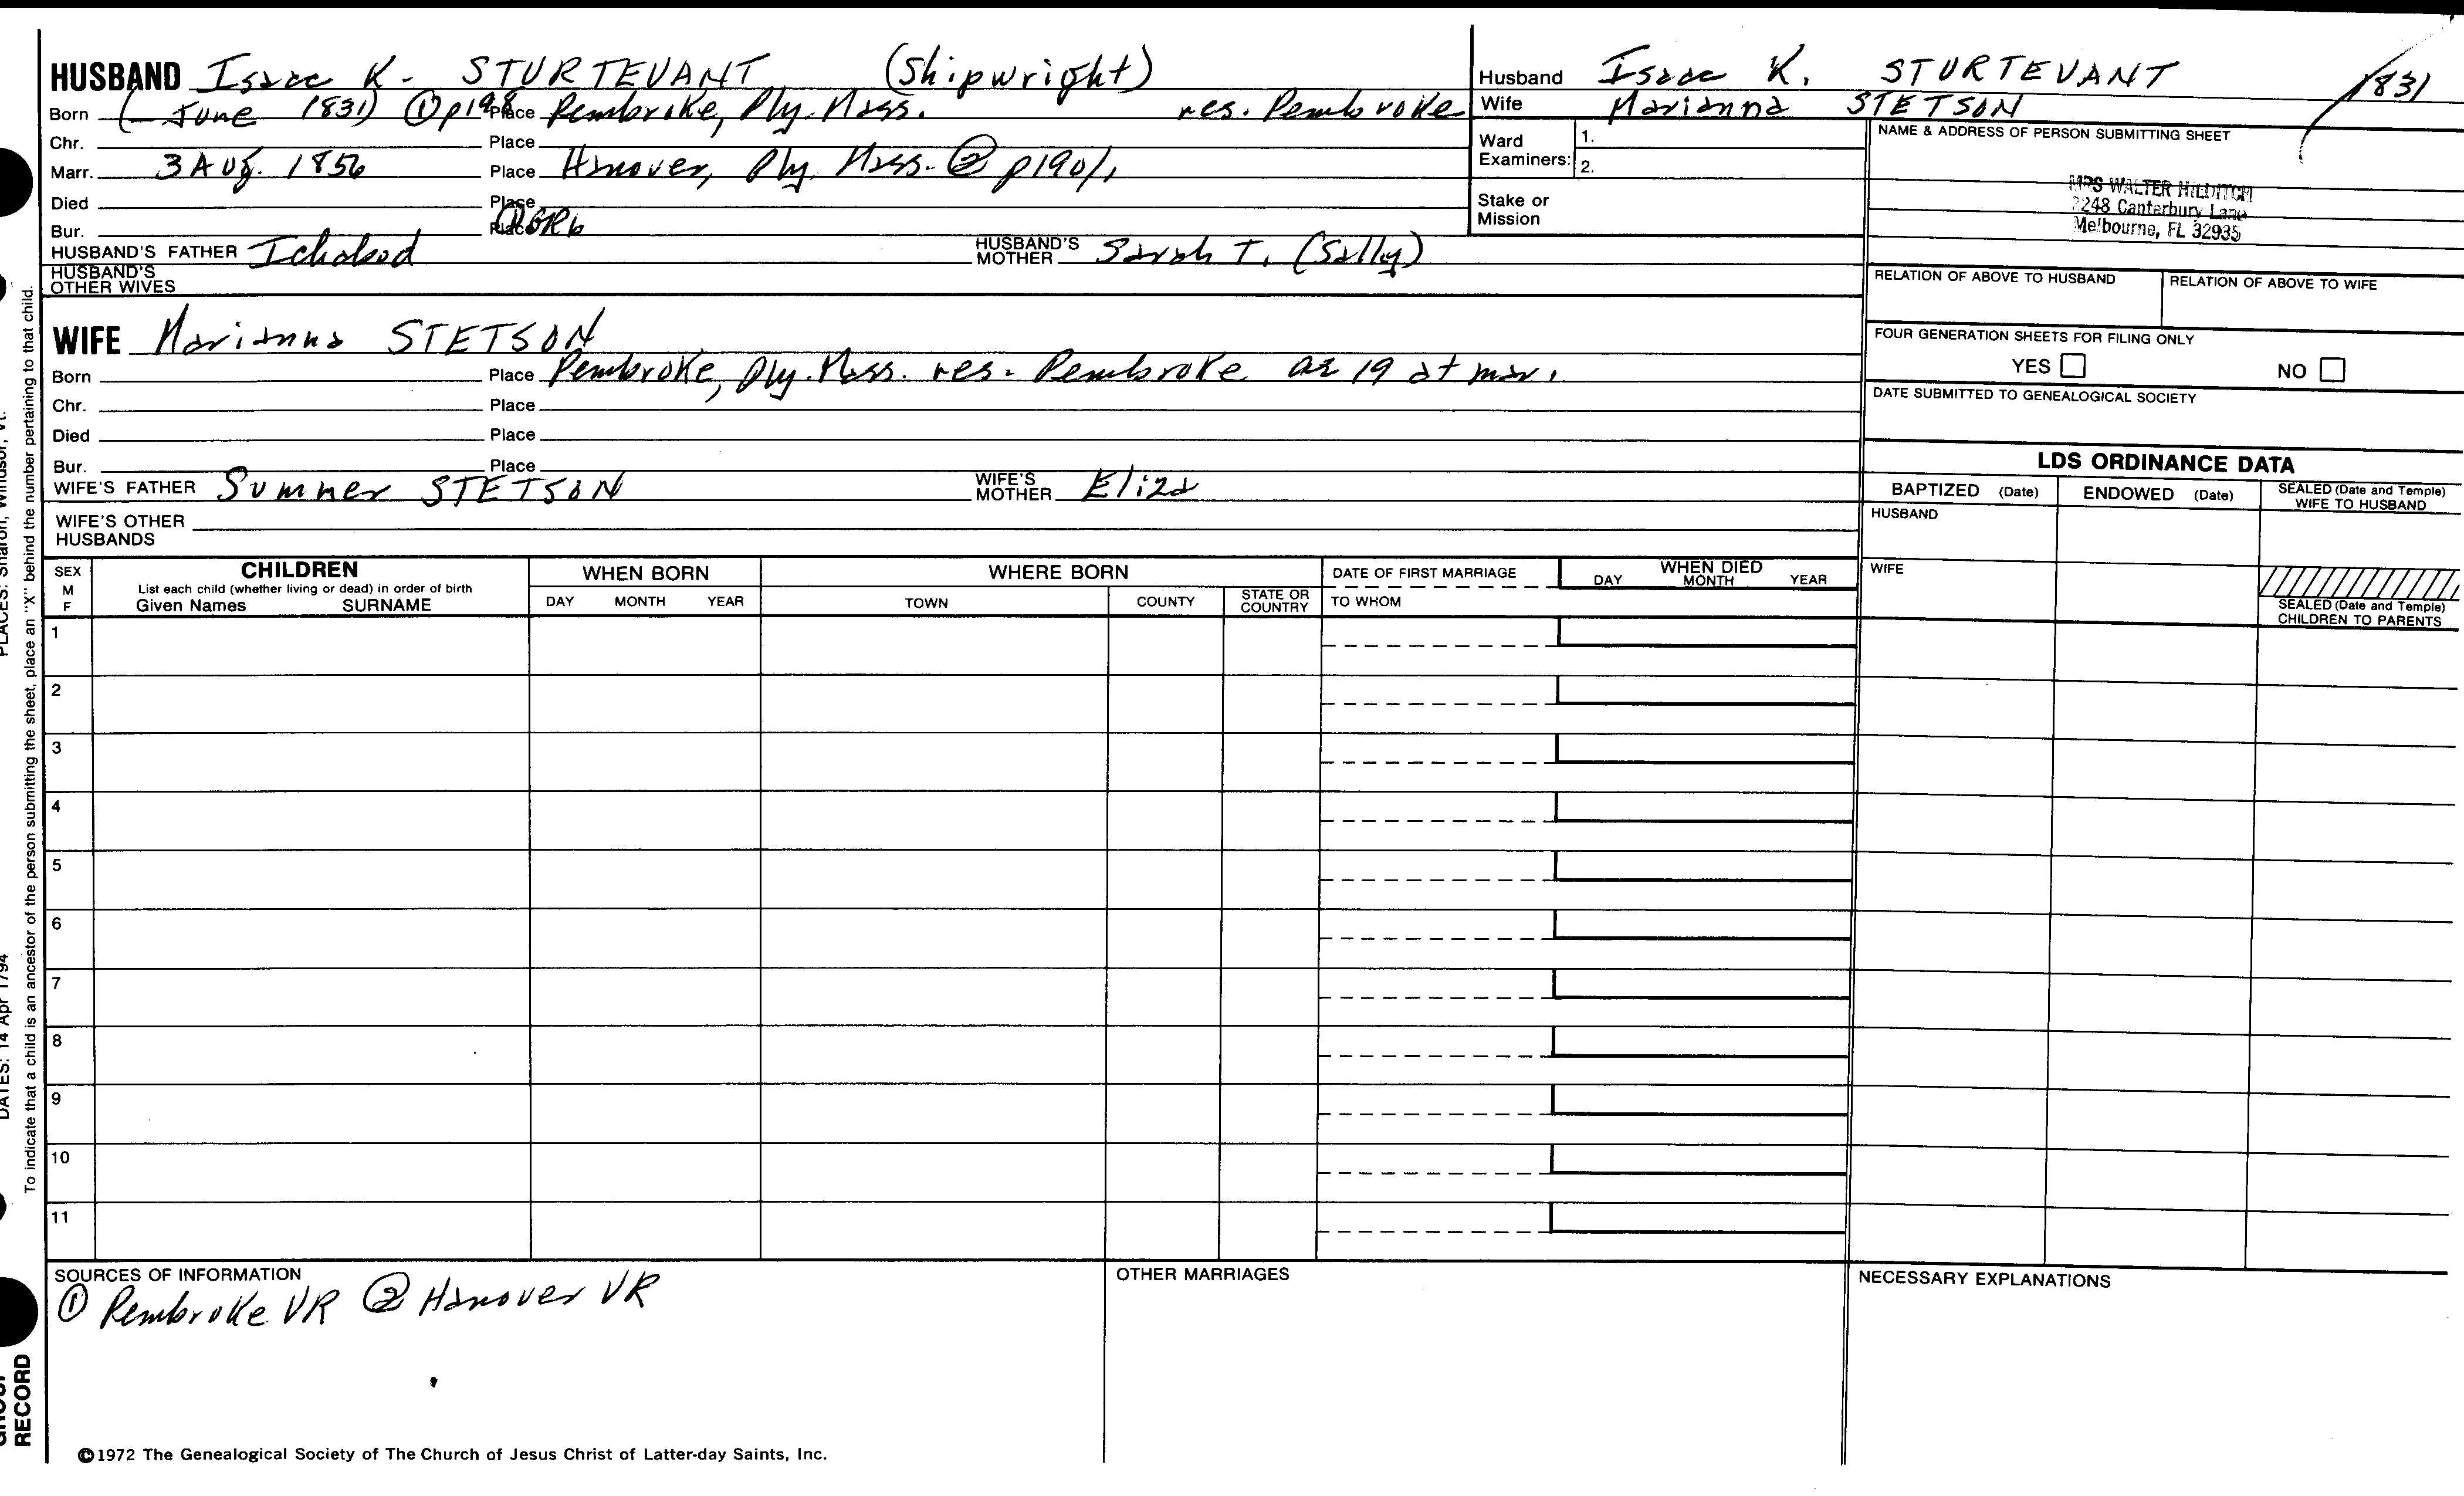 HUSBAND Isaac K. STURTEVANT (Shipwright)
Born (- June 1831) ① p198 Place Pembroke, Ply. Mass. res. Pembroke
Chr. Place
Marr. 3 Aug. 1856 Place Hanover, Ply. Mass. ② p190/1
Died Place
Bur. Place GR6
HUSBAND'S FATHER Ichabod HUSBAND'S MOTHER Sarah T. (Sally)
HUSBAND'S OTHER WIVES
Husband Isaac K. STURTEVANT 1831
Wife Marianna STETSON
Ward Examiners: 1.
2.
Stake or Mission
NAME & ADDRESS OF PERSON SUBMITTING SHEET
MRS WALTER HILDITCH
2248 Canterbury Lane
Melbourne, FL 32935
RELATION OF ABOVE TO HUSBAND RELATION OF ABOVE TO WIFE
FOUR GENERATION SHEETS FOR FILING ONLY
YES NO
DATE SUBMITTED TO GENEALOGICAL SOCIETY
WIFE Marianna STETSON
Born Place Pembroke, Ply. Mass. res. Pembroke ae 19 at mar.
Chr. Place
Died Place
Bur. Place
WIFE'S FATHER Sumner STETSON WIFE'S MOTHER Eliza
WIFE'S OTHER HUSBANDS
LDS ORDINANCE DATA
BAPTIZED (Date) ENDOWED (Date) SEALED (Date and Temple) WIFE TO HUSBAND
HUSBAND
WIFE
SEALED (Date and Temple) CHILDREN TO PARENTS
SEX M F
CHILDREN
List each child (whether living or dead) in order of birth
Given Names SURNAME
WHEN BORN
DAY MONTH YEAR
WHERE BORN
TOWN COUNTY STATE OR COUNTRY
DATE OF FIRST MARRIAGE
TO WHOM
WHEN DIED
DAY MONTH YEAR
1
2
3
4
5
6
7
8
9
10
11
SOURCES OF INFORMATION
① Pembroke VR ② Hanover VR
OTHER MARRIAGES
NECESSARY EXPLANATIONS
©1972 The Genealogical Society of The Church of Jesus Christ of Latter-day Saints, Inc.
To indicate that a child is an ancestor of the person submitting the sheet, place an "X" behind the number pertaining to that child.
PLACES: Sharon, Windsor, Vt.
DATES: 14 Apr 1794
GROUP
RECORD